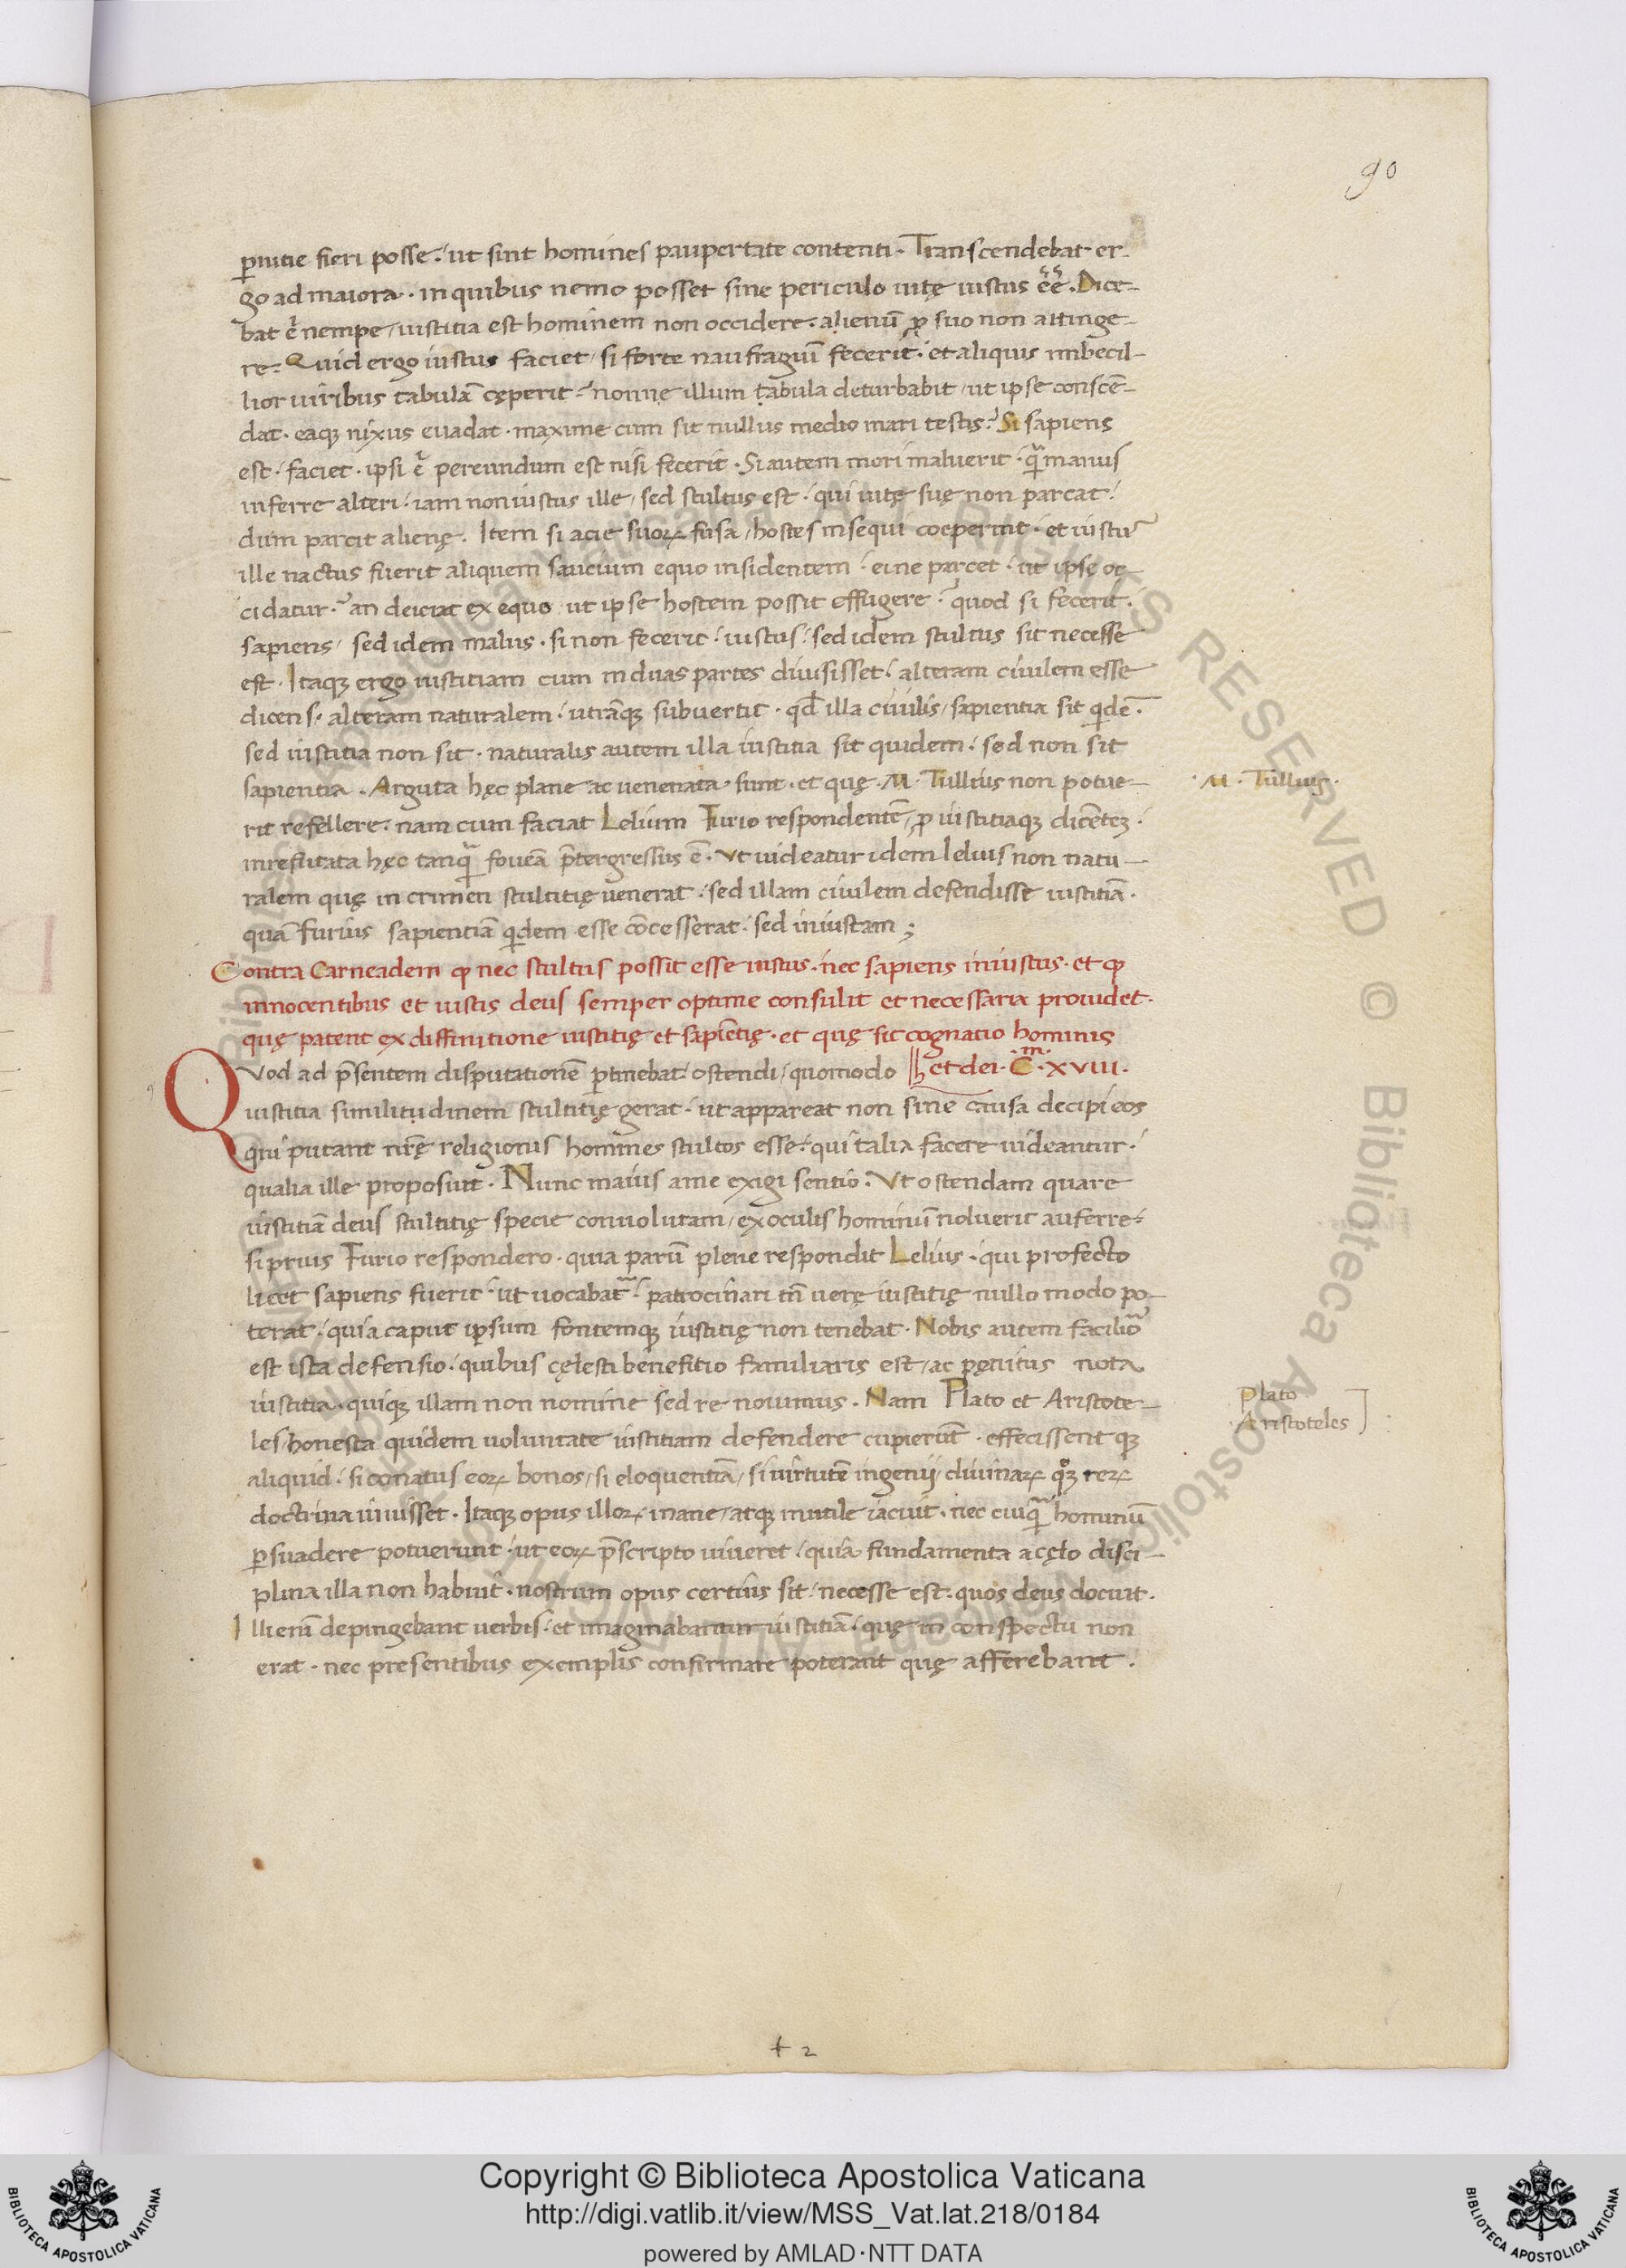 90
ꝑnitie fieri posse. ut sint homines paupertate contenti. Transcendebat er-
go ad maiora. in quibus nemo posset sine periculo uitę iustus eē. Dice-
bat .n. nempe, iustitia est hominem non occidere. alienū ꝓ suo non attinge-
re. Quid ergo iustus faciet, si forte naufragiū fecerit. et aliquis imbecil-
lior uiribus tabulā cęperit? nonne illum tabula deturbabit, ut ipse conscē-
dat. eaqꝫ nixus euadat. maxime cum sit nullus medio mari testis? Si sapiens
est. faciet. ipsi .n. pereundum est nisi fecerit. Si autem mori maluerit. qͣ manus
inferre alteri. iam non iustus ille, sed stultus est. qui uitę suę non parcat.
dum parcit alienę. Item si acie suoꝝ fusa, hostes insequi coeperint. et iustu᷒
ille nactus fuerit aliquem saucium equo insidentem. eine parcet. ut ipse oc-
cidatur? an deiciat ex equo ut ipse hostem possit effugere? quod si fecerit.
sapiens, sed idem malus. si non fecerit. iustus. sed idem stultus sit necesse
est. Itaqꝫ ergo iustitiam cum in duas partes diuisisset. alteram ciuilem esse
dicens. alteram naturalem. utrāqꝫ subuertit. qđ illa ciuilis, sapientia sit qidē.
sed iustitia non sit. naturalis autem illa iustitia sit quidem. sed non sit
sapientia. Arguta hęc plane ac uenenata sunt. et quę .M. Tullius non potue-
rit refellere. nam cum faciat Lelium Furio respondentē, ꝓ iustitiaqꝫ dicēteꝫ.
inrefutata hęc tanqͣ foueā p̄tergressus ē. Vt uideatur idem lelius non natu-
ralem quę in crimen stultitię uenerat. sed illam ciuilem defendisse iustitiā.
quā Furius sapientiā qidem esse cōcesserat. sed iniustam;
Contra Carneadem ꝙ nec stultus possit esse iustus. nec sapiens iniustus. et ꝙ
innocentibus et iustis deus semper optime consulit et necessaria prouidet.
quę patent ex diffinitione iustitię et sapiētię. et quę sit cognatio hominis
et dei. C.m XVIII.
QVod ad p̄sentem disputationē ꝑtinebat. ostendi, quomodo
iustitia similitudinem stultitię gerat. ut appareat non sine causa decipi eos
qui putant nr̄ę religionis homines stultos esse. qui talia facere uideantur.
qualia ille proposuit. Nunc maius a me exigi sentio. Vt ostendam quare
iustitiā deus stultitię specie conuolutam, ex oculis hominū noluerit auferre.
si prius Furio respondero. quia parū plene respondit Lelius. qui profecto
licet sapiens fuerit ut uocabat᷑. patrocinari tn̄ uerę iustitię nullo modo po-
terat. quia caput ipsum fontemqꝫ iustitię non tenebat. Nobis autem facilio᷑
est ista defensio. quibus cęlesti benefitio familiaris est, ac pęnitus nota
iustitia. quiqꝫ illam non nomine sed re nouimus. Nam Plato et Aristote-
les, honesta quidem uoluntate iustitiam defendere cupierūt. effecissent qꝫ
aliquid. si conatus eoꝝ bonos, si eloquentiā, si uirtutē ingenij, diuinaꝝ qͦꝫ reꝝ
doctrina iuuisset. Itaqꝫ opus illoꝝ inane, atqꝫ inutile iacuit. nec cuiqͣ hominū
ꝑsuadere potuerunt. ut eoꝝ p̄scripto uiueret. quia fundamenta a cęlo disci-
plina illa non habuit. nostrum opus certius sit. necesse est. quos deus docuit.
Illi enī depingebant uerbis. et imaginabantur iustitiā. quę in conspectu non
erat. nec presentibus exemplis confirmare poterant quę afferebant.
.M. Tullius.
Plato
Aristoteles
t 2
Copyright © Biblioteca Apostolica Vaticana
http://digi.vatlib.it/view/MSS_Vat.lat.218/0184
powered by AMLAD·NTT DATA
BIBLIOTECA APOSTOLICA VATICANA
BIBLIOTECA APOSTOLICA VATICANA